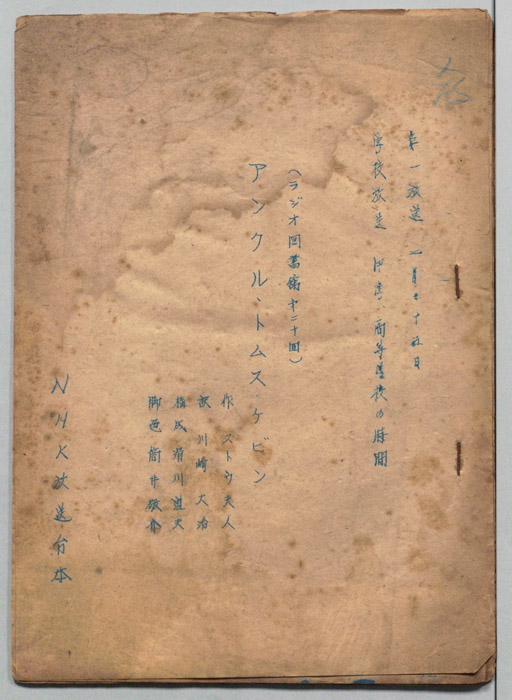 第一放送 一月二十五日
学校放送 中学・高等学校の時間
（ラジオ図書館 第二十回）
アンクル・トムス・ケビン
作 ストウ夫人
訳 川崎大治
構成 滑川道夫
脚色 筒井敬介
NHK放送台本